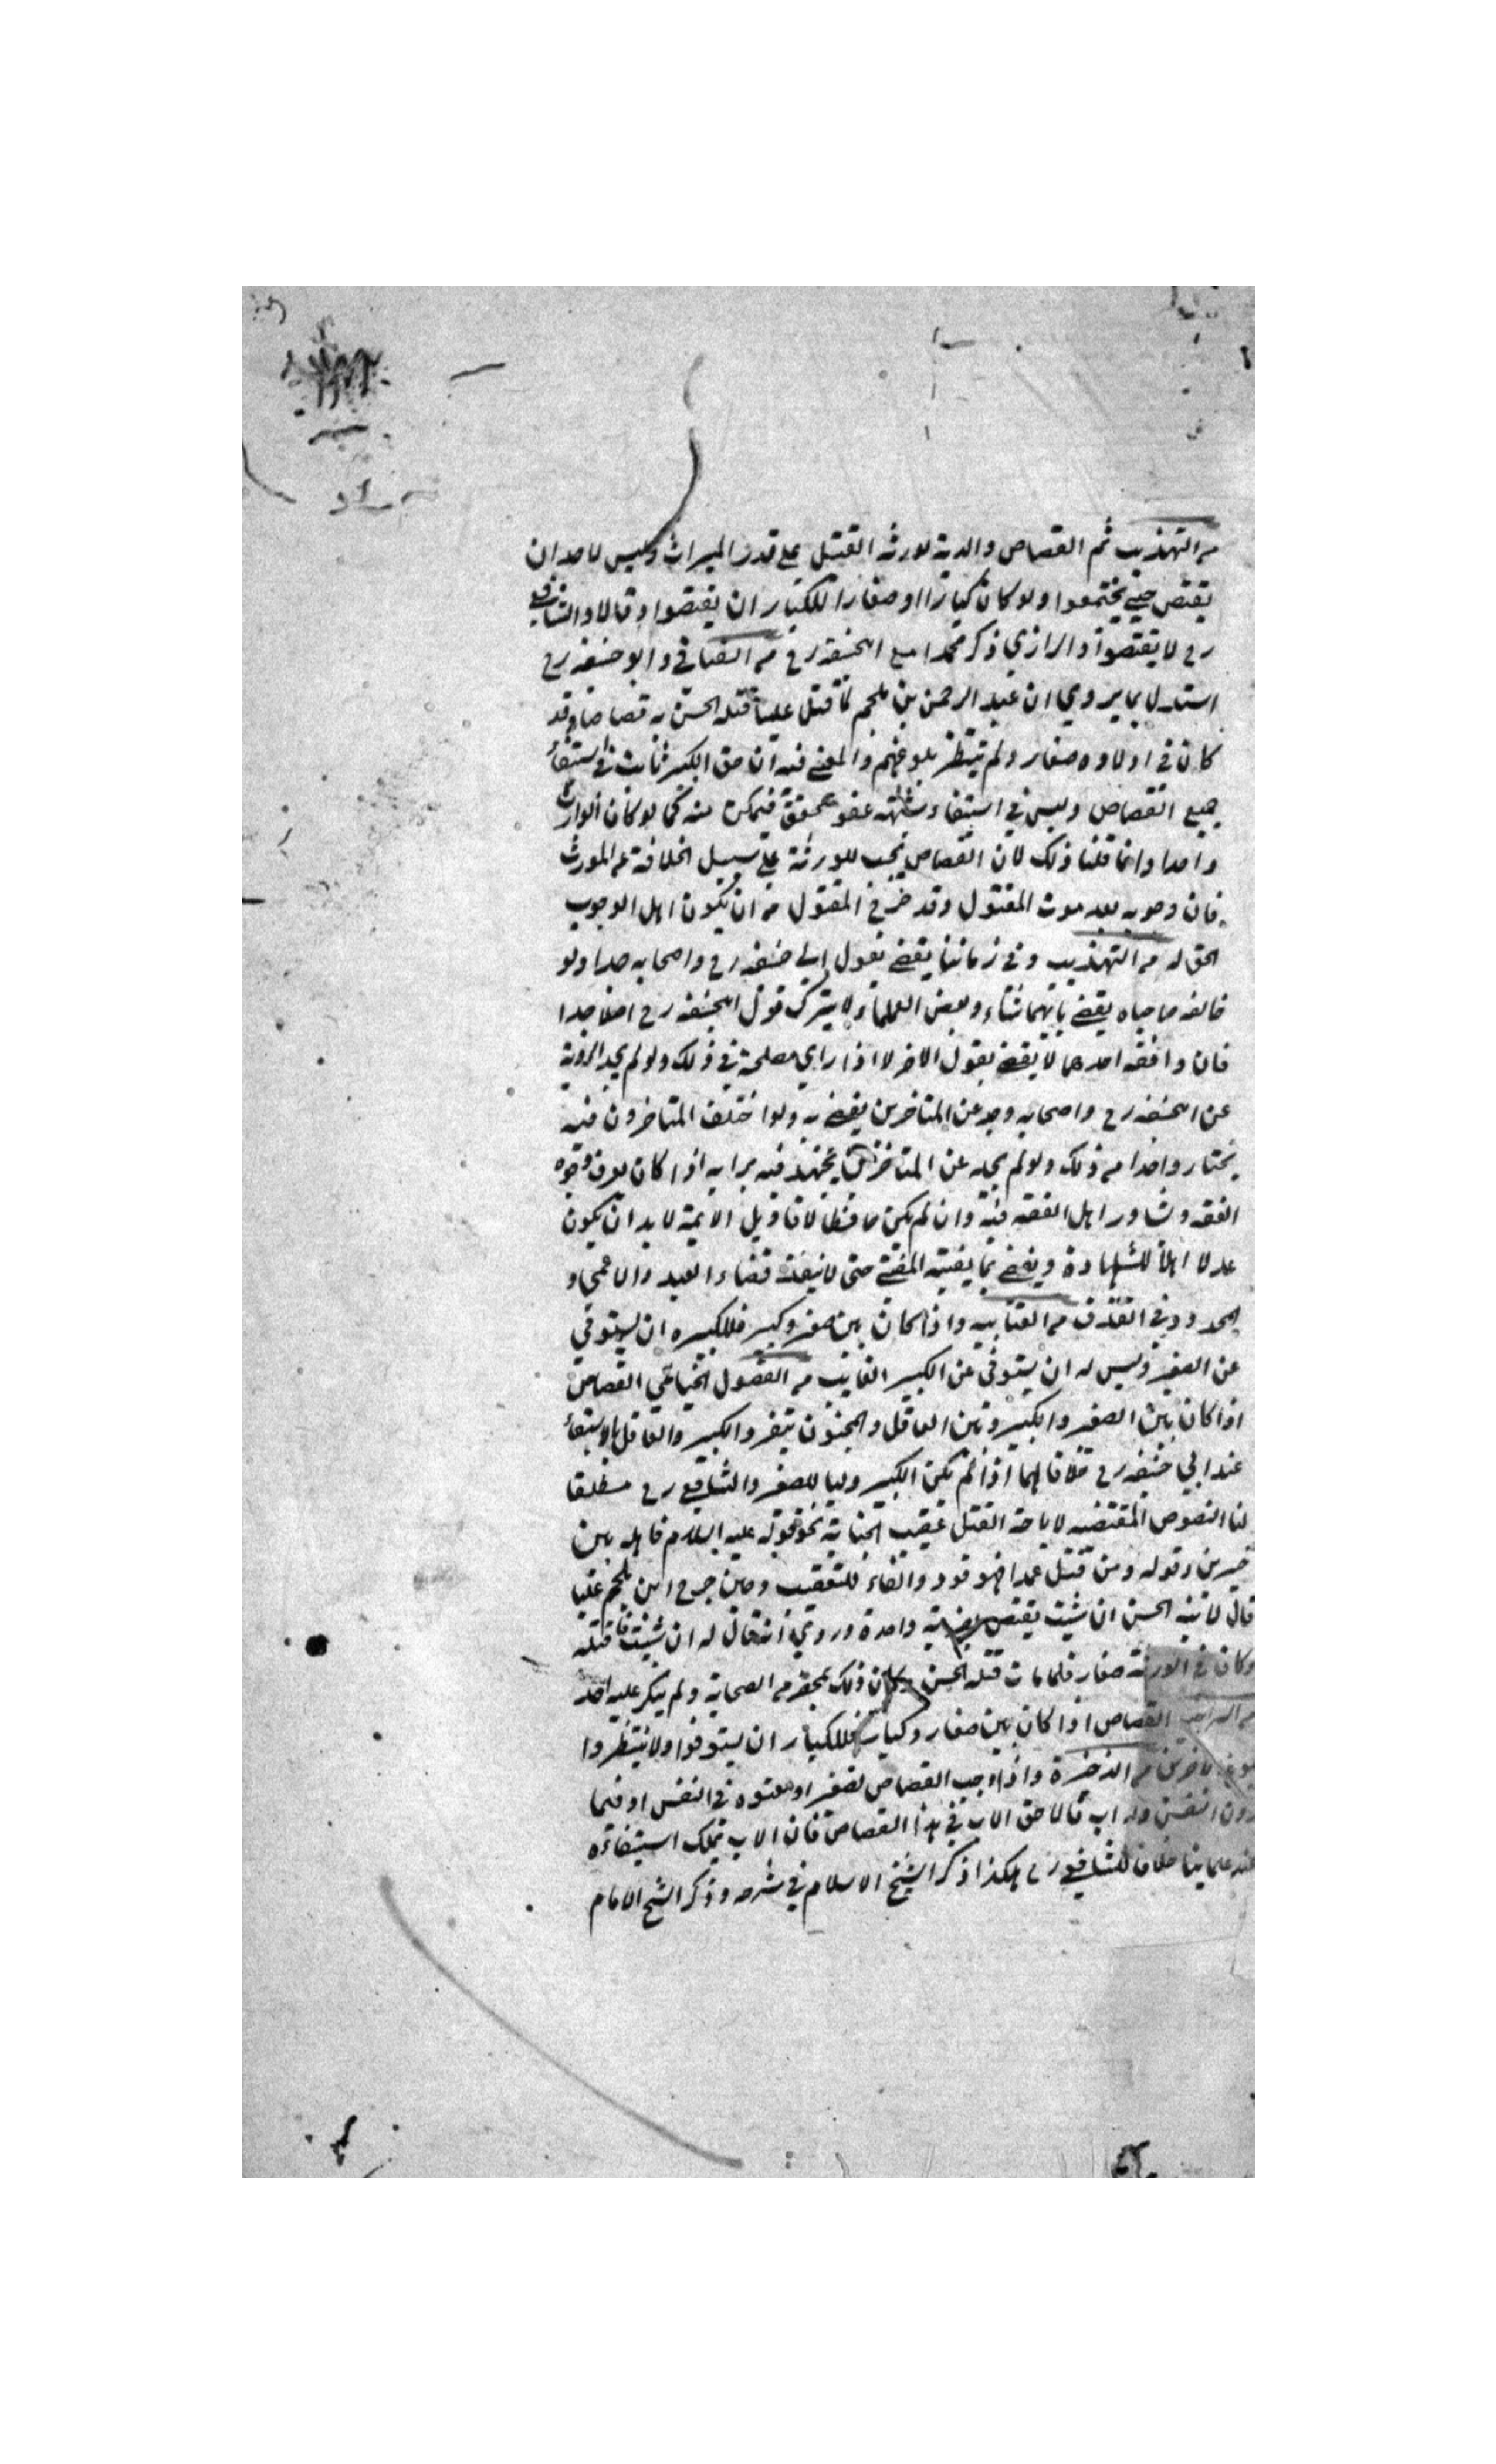 من التهذيب ثم القصاص والدية لورثه القتيل على قدر الميراث وليس لاحد ان
يقتص حتى يجتمعوا ولو كان كبارا او صغارا للكبار ان يقتصوا وقالا والشافعي
رح لا يقتصوا والرازي ذكر محمدا مع ابيحنيفه رح من الغيا في وابو حنيفه رح
استدل بما يروي ان عبد الرحمن بن ملجم لما قتل عليا قتله الحسن به قصاصا وقد
كان في اولاده صغار ولم ينتظر بلوغهم والمعنى فيه ان حق الكبير ثابت في استيفاء
جميع القصاص وليس في استيفاء شبهة عفو محقق فيمكن منه كما لو كان الوارث
واحدا وانما قلنا ذلك لان القصاص يجب للورثة على سبيل الخلافة عن المورث
فان وجوبه بعد موت المقتول وقد خرج المقتول من ان يكون اهل الوجوب
الحق له من التهذيب وفي زماننا يقضى بقول ابي حنيفه رح واصحابه جدا ولو
خالفه صاحباه يقضى بايهما شاء وبعض العلماء لا يترك قول ابيحنيفه رح اصلا جدا
فان وافقه احدهما لا يقضى بقول الاخر لا اذا راي مصلحة في ذلك ولو لم يجد الروية
عن ابيحنيفه رح واصحابه وجد عن المتاخرين يقضى به ولو اختلف المتاخرون فيه
يختار واحدا من ذلك ولو لم يجده عن المتاخرين يجتهد فيه برايه اذا كان يعرف وجوه
الفقه وشاور اهل الفقه فيه وان لم يكن حافظا لاقاويل الايمة لا بد ان يكون
عدلا اهلا للشهادة ويقضى بما يفتيه المفتى حتى لا ينفذ قضاء العبد والاعمى و
المحدود في القذف من العتابيه واذا كان بين صغير وكبير فللكبيره ان يستوفي
عن الصغير وليس له ان يستوفي عن الكبير الغايب من الفصول القصاص
اذا كان بين الصغير والكبير وبين العاقل والمجنون ينفرد الكبير والعاقل بالاستيفاء
عند ابي حنيفه رح خلافا لهما اذا لم يكن الكبير وليا للصغير والشافعي رح مطلقا
لنا النصوص المقتضيه لاباحة القتل عقيب الجناية نحو قوله عليه السلام فاهله بين
خيرين وقوله ومن قتل عمدا فهو قود والفاء للتعقيب وحين جرح ابن ملجم عليا
قال لابنه الحسن ان شيت يقتص بضربة واحدة وروي انه قال له ان شئت فاقتله
وكان في الورثة صغار فلما مات قتله الحسن وكان ذلك بمحضر من الصحابة ولم ينكر عليه احد
القصاص اذا كان بين صغار وكبار فللكبار ان يستوفوا ولا ينتظروا
من الذخيرة واذا وجب القصاص لصغير او معتوه في النفس او فيما
دون النفس وله اب قالا حق الاب في هذا القصاص فان الاب يملك استيفاءه
عند علماينا خلافا للشافعي رح هكذا ذكر الشيخ الاسلام في شرحه وذكر الشيخ الامام